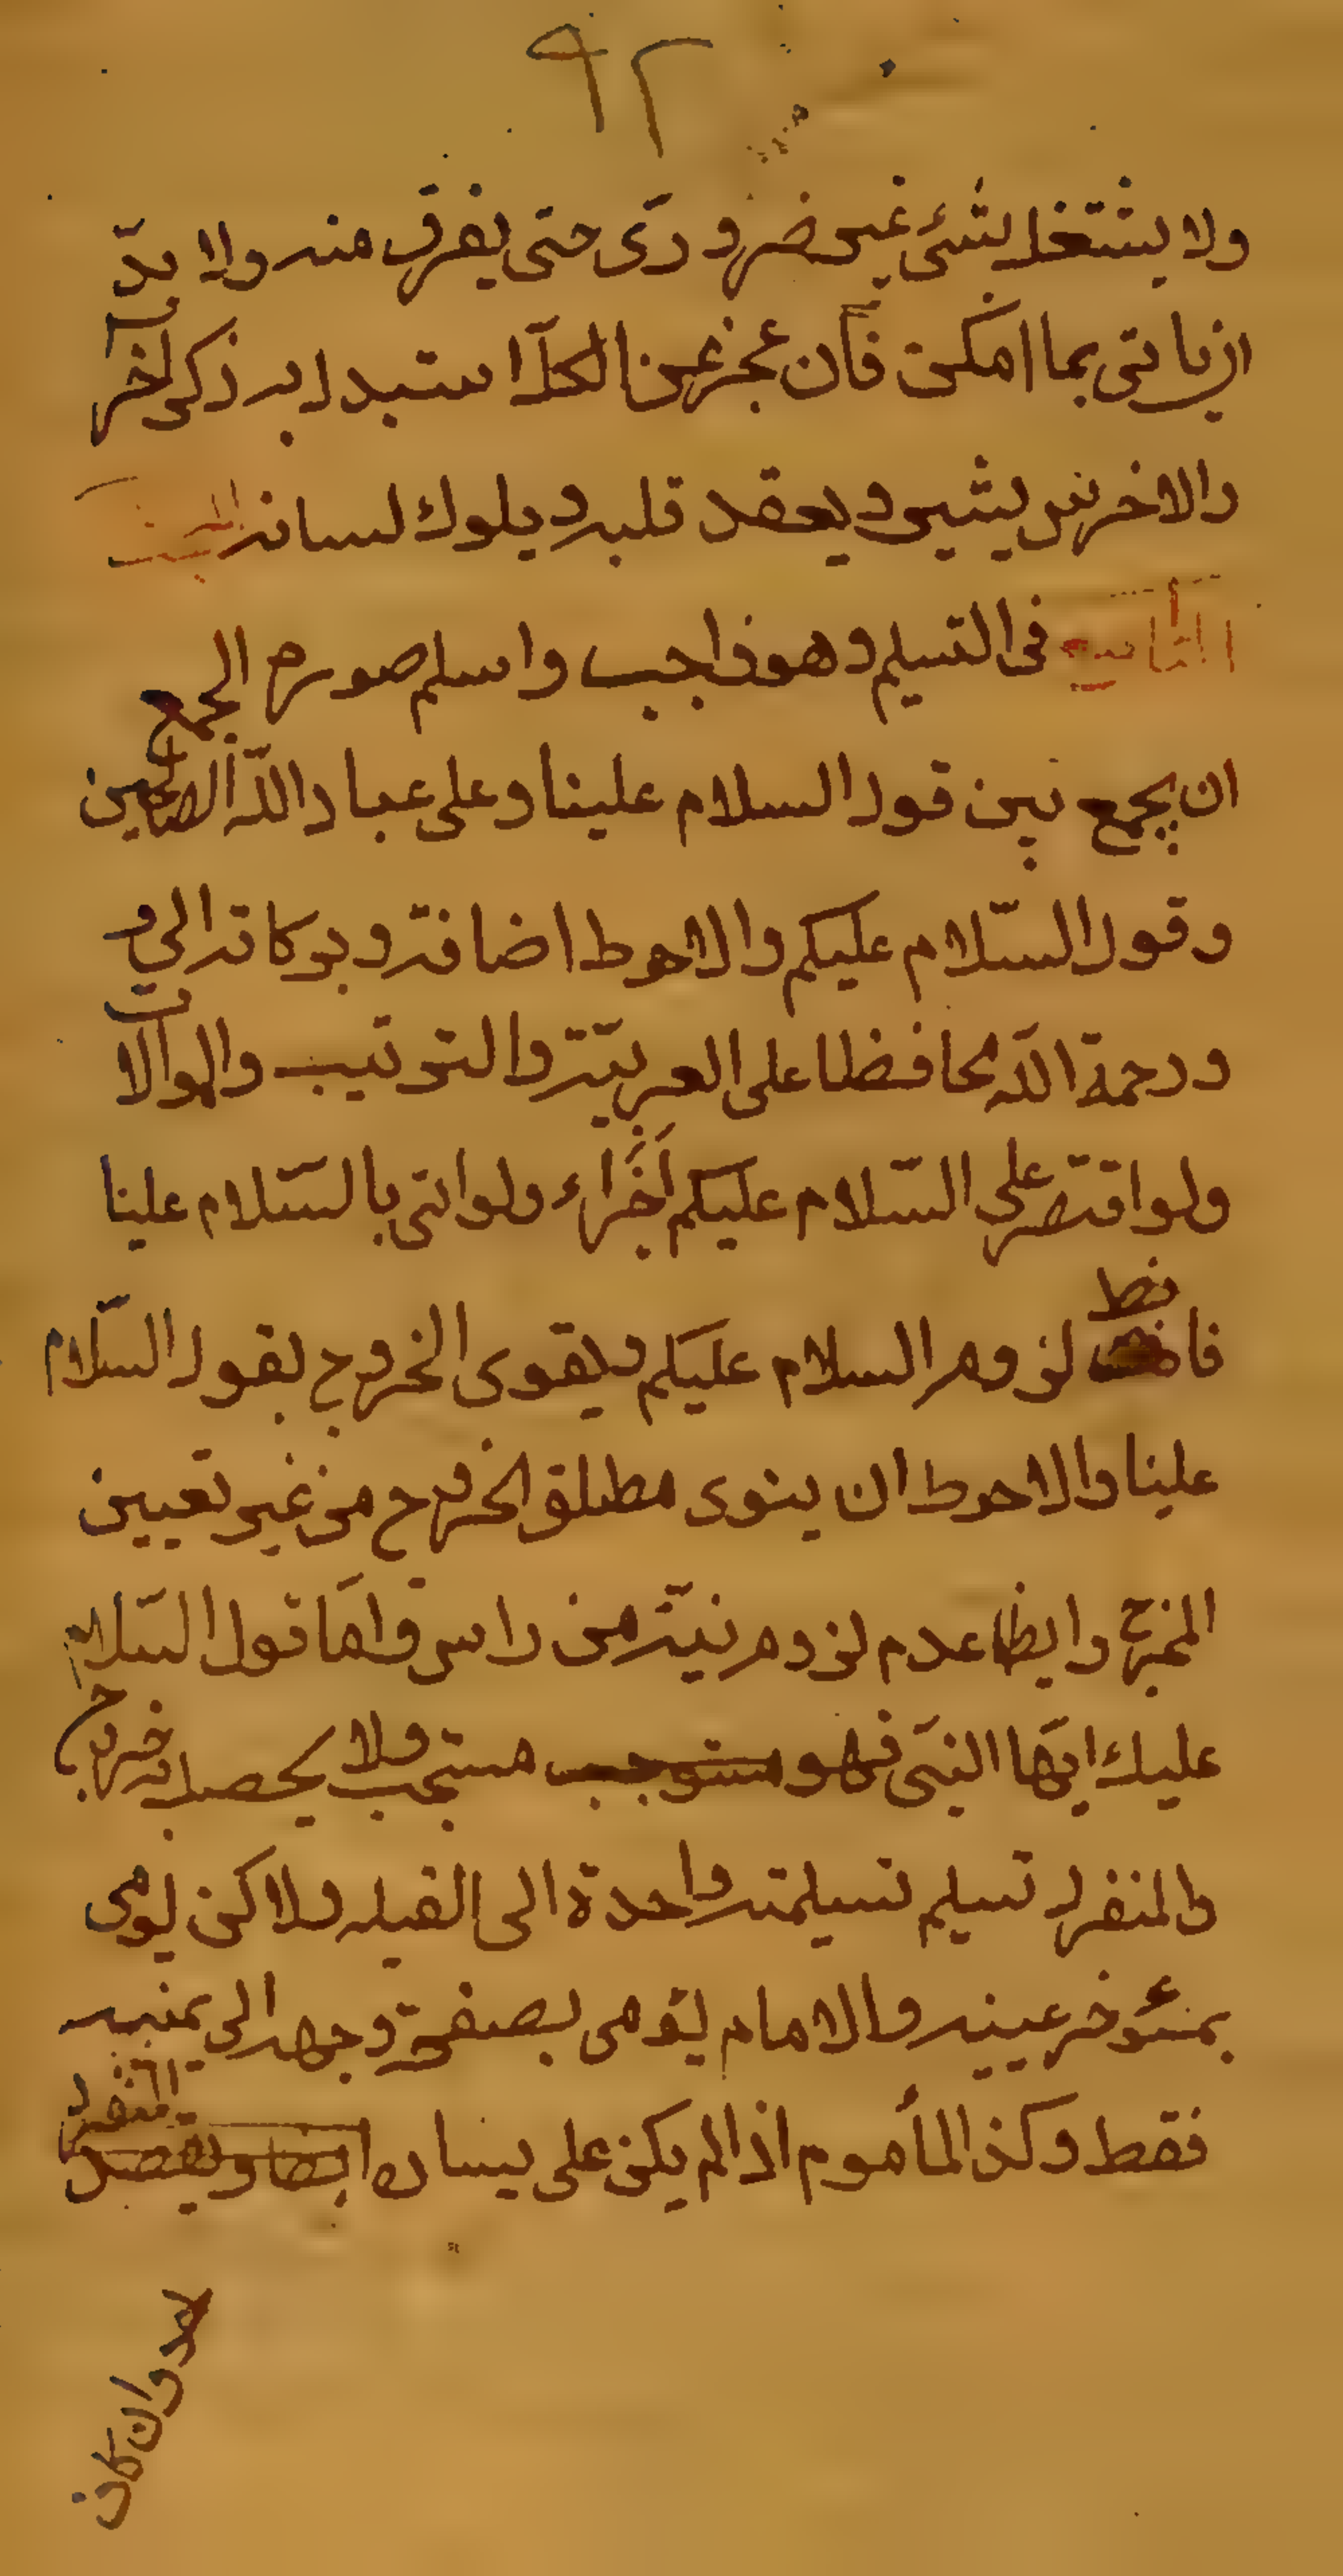 ٩٢
ولا يشتغل بشئ غير ضروري حتى يفرق منه ولا بدّ
ان ياتى بما امكن فان عجز عن الكل استبدل به ذكر اخر
والاخرس يشير ويعقد قلبه ويلوك لسانه المبحث
الثامن فى التسليم وهو واجب واسلم صوره الجمع
ان يجمع بين قول السلام علينا وعلى عباد الله الصالحين
وقول السّلام عليكم والاحوط اضافة وبركاته الى
ورحمة الله محافظا على العربيّة والترتيب والموالات
ولو اقتصر على السّلام عليكم اجزاء ولو اتى بالسّلام علينا
فالاحوط لزوم السلام عليكم ويقوى الخروج بقول السّلام
علينا والاحوط ان ينوى مطلق الخروج من غير تعيين
المخرج وايضا عدم لزوم نيّة من راس واما قول السّلام
عليك ايها النبى فهو مستوجب مستحب ولا يحصل به خروج
والمنفرد تسليم تسليمة واحدة الى القبله ولاكن يومى
بمئوخر عينيه والامام يؤمى بصفحة وجهه الى يمينه
فقط وكذ المأموم اذ الم يكن على يساره ايضا ويقصد المنفرد
احد وان كان